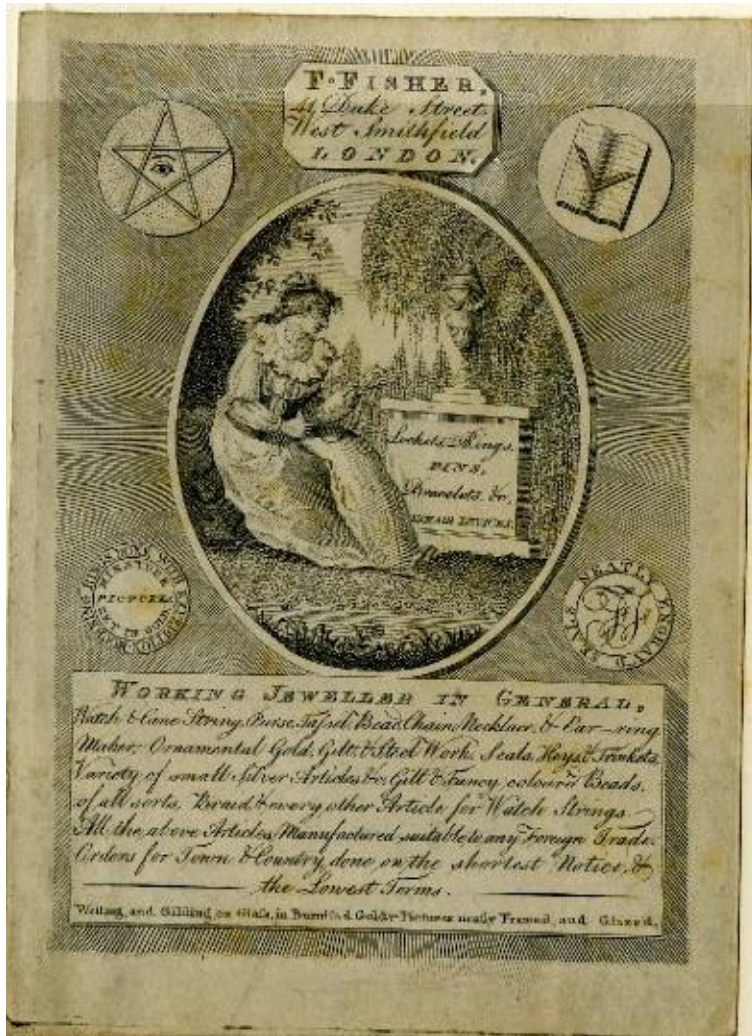 F. FISHER,
41 Duke Street,
West Smithfield
LONDON.
Lockets, Rings,
PINS,
Bracelets, &c.
HAIR DEVICES.
MINIATURE
PICTURES
SET IN GOLD
NEATLY ENGRAV'D SEALS
FF
WORKING JEWELLER IN GENERAL,
Watch & Cane String, Purse, Tassel, Bead, Chain, Necklace, & Ear-ring
Maker; Ornamental Gold, Gilt, & Steel Work, Seals, Keys, & Trinkets,
Variety of small Silver Articles &c. Gilt & Fancy colour'd Beads,
of all sorts, Braid & every other Article for Watch Strings
All the above Articles Manufactured suitable to any Foreign Trade.
Orders for Town & Country, done on the shortest Notice, &
the Lowest Terms.
Writing, and Gilding on Glass, in Burnish'd Gold & Pictures neatly Framed, and Glazed.